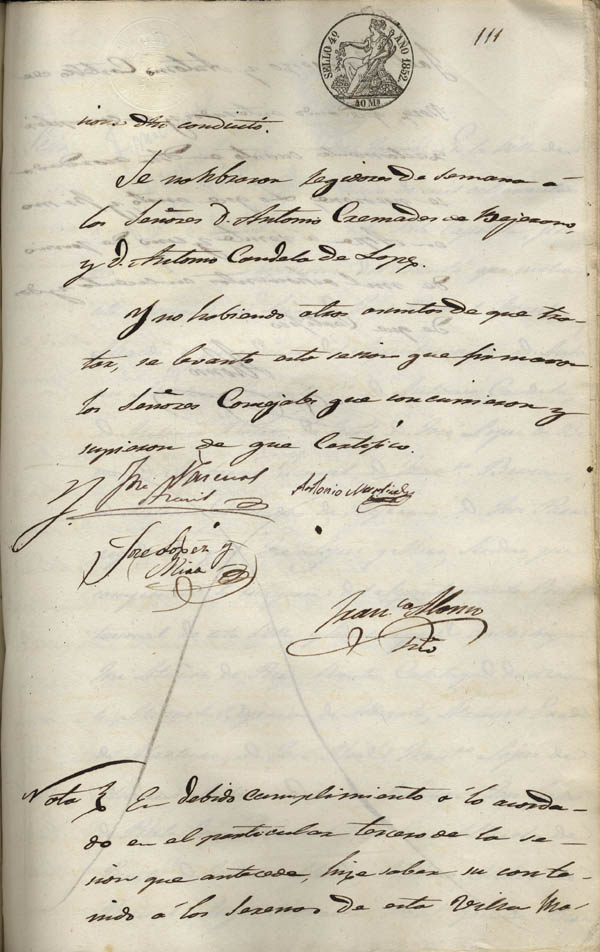 SELLO 4º AÑO 1852.
40 Ms
111
conducto.
Se nombraron regidores de semana á
los Señores D. Antonio Cremades de Bejerano,
y D. Antonio Candela de Lopez.
Y no habiendo otros asuntos de que tra-
tar, se levantó esta sesion que firmaron
los Señores Concejales que concurrieron y
supieron de que Certifico.
Jose Pascual
Antonio
Jose Lopez y
Mira
Franco Alonso
Srio
Nota En debido cumplimiento á lo acorda-
do en el particular tercero de la se-
sion que antecede, hize saber su conte-
nido á los Serenos de esta Villa Ma-